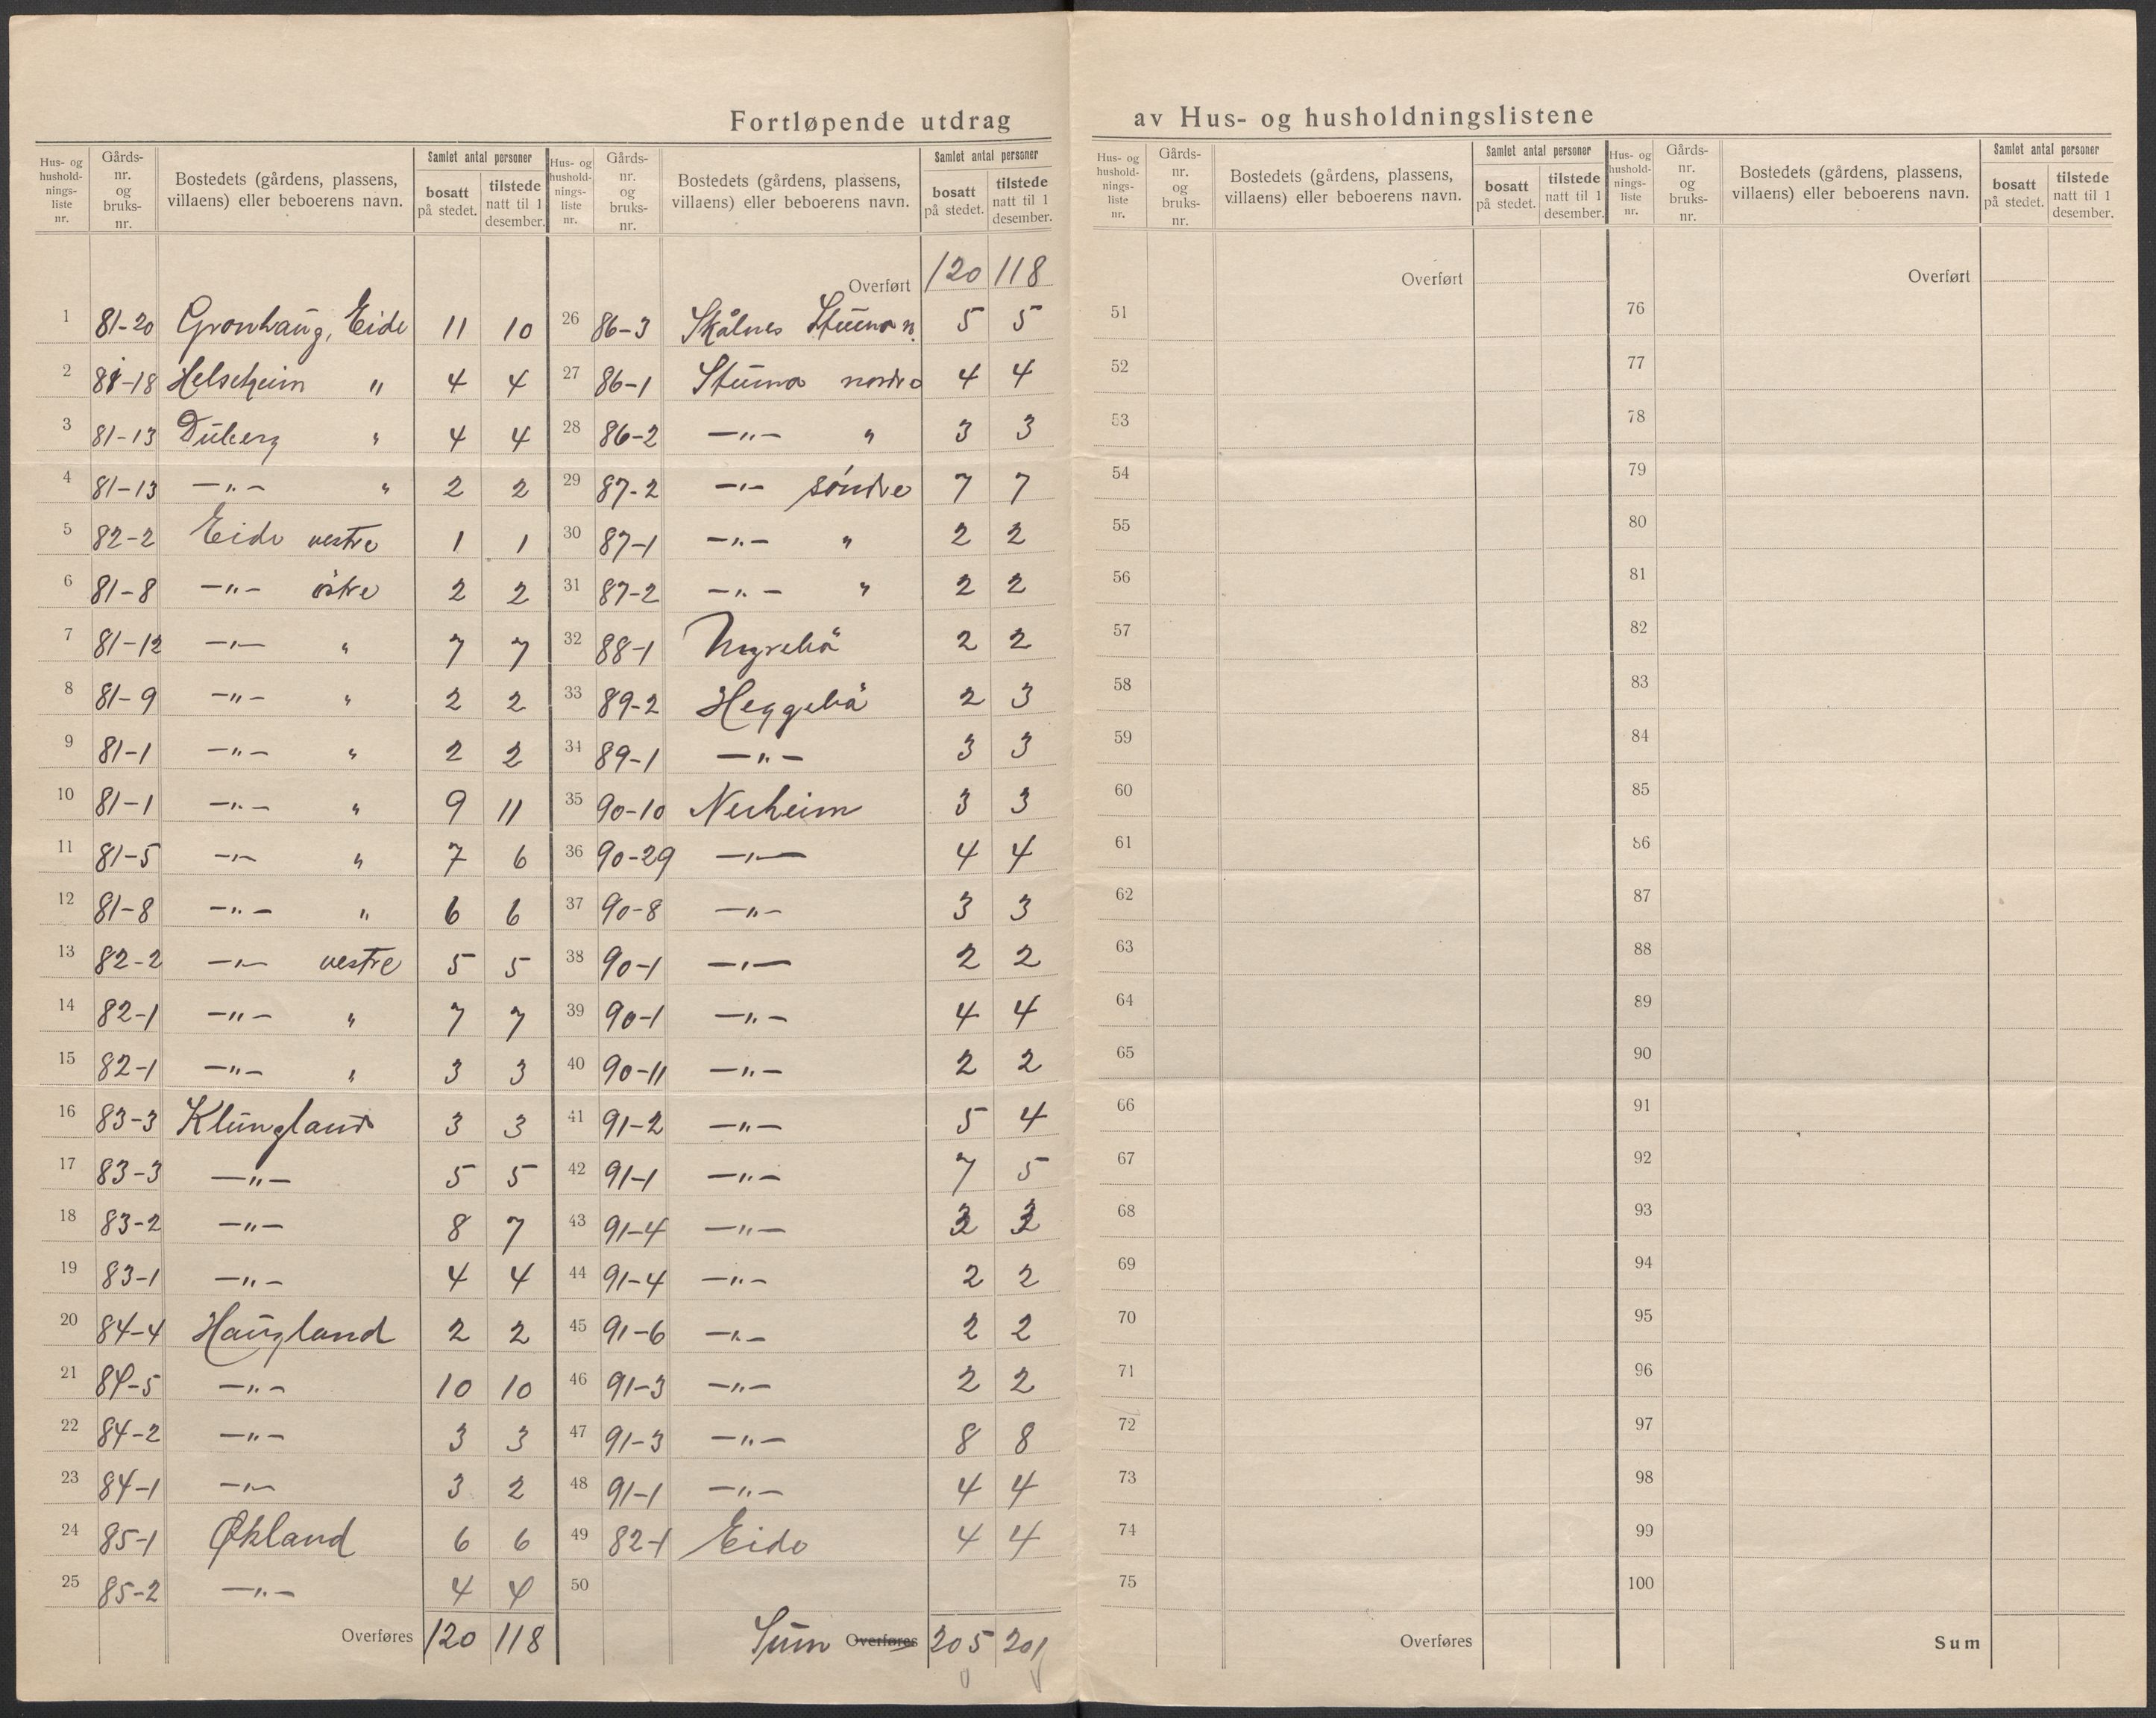 Fortløpende utdrag av Hus- og husholdningslistene
Hus- og husholdnings-liste nr. Gårds-nr. og bruks-nr. Bostedets (gårdens, plassens, villaens) eller beboerens navn. Samlet antal personer bosatt på stedet. tilstede natt til 1 desember.
1 81-20 Gronhaug, Eide 11 10
2 81-18 Helseheim " 4 4
3 81-13 Duberg " 4 4
4 81-13 —"— " 2 2
5 82-2 Eide vestre 1 1
6 81-8 —"— östre 2 2
7 81-12 —"— " 7 7
8 81-9 —"— " 2 2
9 81-1 —"— " 2 2
10 81-1 —"— " 9 11
11 81-5 —"— " 7 6
12 81-8 —"— " 6 6
13 82-2 —"— vestre 5 5
14 82-1 —"— " 7 7
15 82-1 —"— " 3 3
16 83-3 Klungland 3 3
17 83-3 —"— 5 5
18 83-2 —"— 8 7
19 83-1 —"— 4 4
20 84-4 Haugland 2 2
21 84-5 —"— 10 10
22 84-2 —"— 3 3
23 84-1 —"— 3 2
24 85-1 Økland 6 6
25 85-2 —"— 4 4
Overføres 120 118
Hus- og husholdnings-liste nr. Gårds-nr. og bruks-nr. Bostedets (gårdens, plassens, villaens) eller beboerens navn. Samlet antal personer bosatt på stedet. tilstede natt til 1 desember.
Overført 120 118
26 86-3 Skålnes Stuma n. 5 5
27 86-1 Stuma nordre 4 4
28 86-2 —"— " 3 3
29 87-2 —"— söndre 7 7
30 87-1 —"— " 2 2
31 87-2 —"— " 2 2
32 88-1 2 2
33 89-2 Heggebö 2 3
34 89-1 —"— 3 3
35 90-10 Nerheim 3 3
36 90-29 —"— 4 4
37 90-8 —"— 3 3
38 90-1 —"— 2 2
39 90-1 —"— 4 4
40 90-11 —"— 2 2
41 91-2 —"— 5 4
42 91-1 —"— 7 5
43 91-4 —"—
44 91-4 —"— 2 2
45 91-6 —"— 2 2
46 91-3 —"— 2 2
47 91-3 —"— 8 8
48 91-1 —"— 4 4
49 82-1 Eide 4 4
50
Sum Overføres 205 201
Hus- og husholdnings-liste nr. Gårds-nr. og bruks-nr. Bostedets (gårdens, plassens, villaens) eller beboerens navn. Samlet antal personer bosatt på stedet. tilstede natt til 1 desember.
Overført
51
52
53
54
55
56
57
58
59
60
61
62
63
64
65
66
67
68
69
70
71
72
73
74
75
Overføres
Hus- og husholdnings-liste nr. Gårds-nr. og bruks-nr. Bostedets (gårdens, plassens, villaens) eller beboerens navn. Samlet antal personer bosatt på stedet. tilstede natt til 1 desember.
Overført
76
77
78
79
80
81
82
83
84
85
86
87
88
89
90
91
92
93
94
95
96
97
98
99
100
Sum